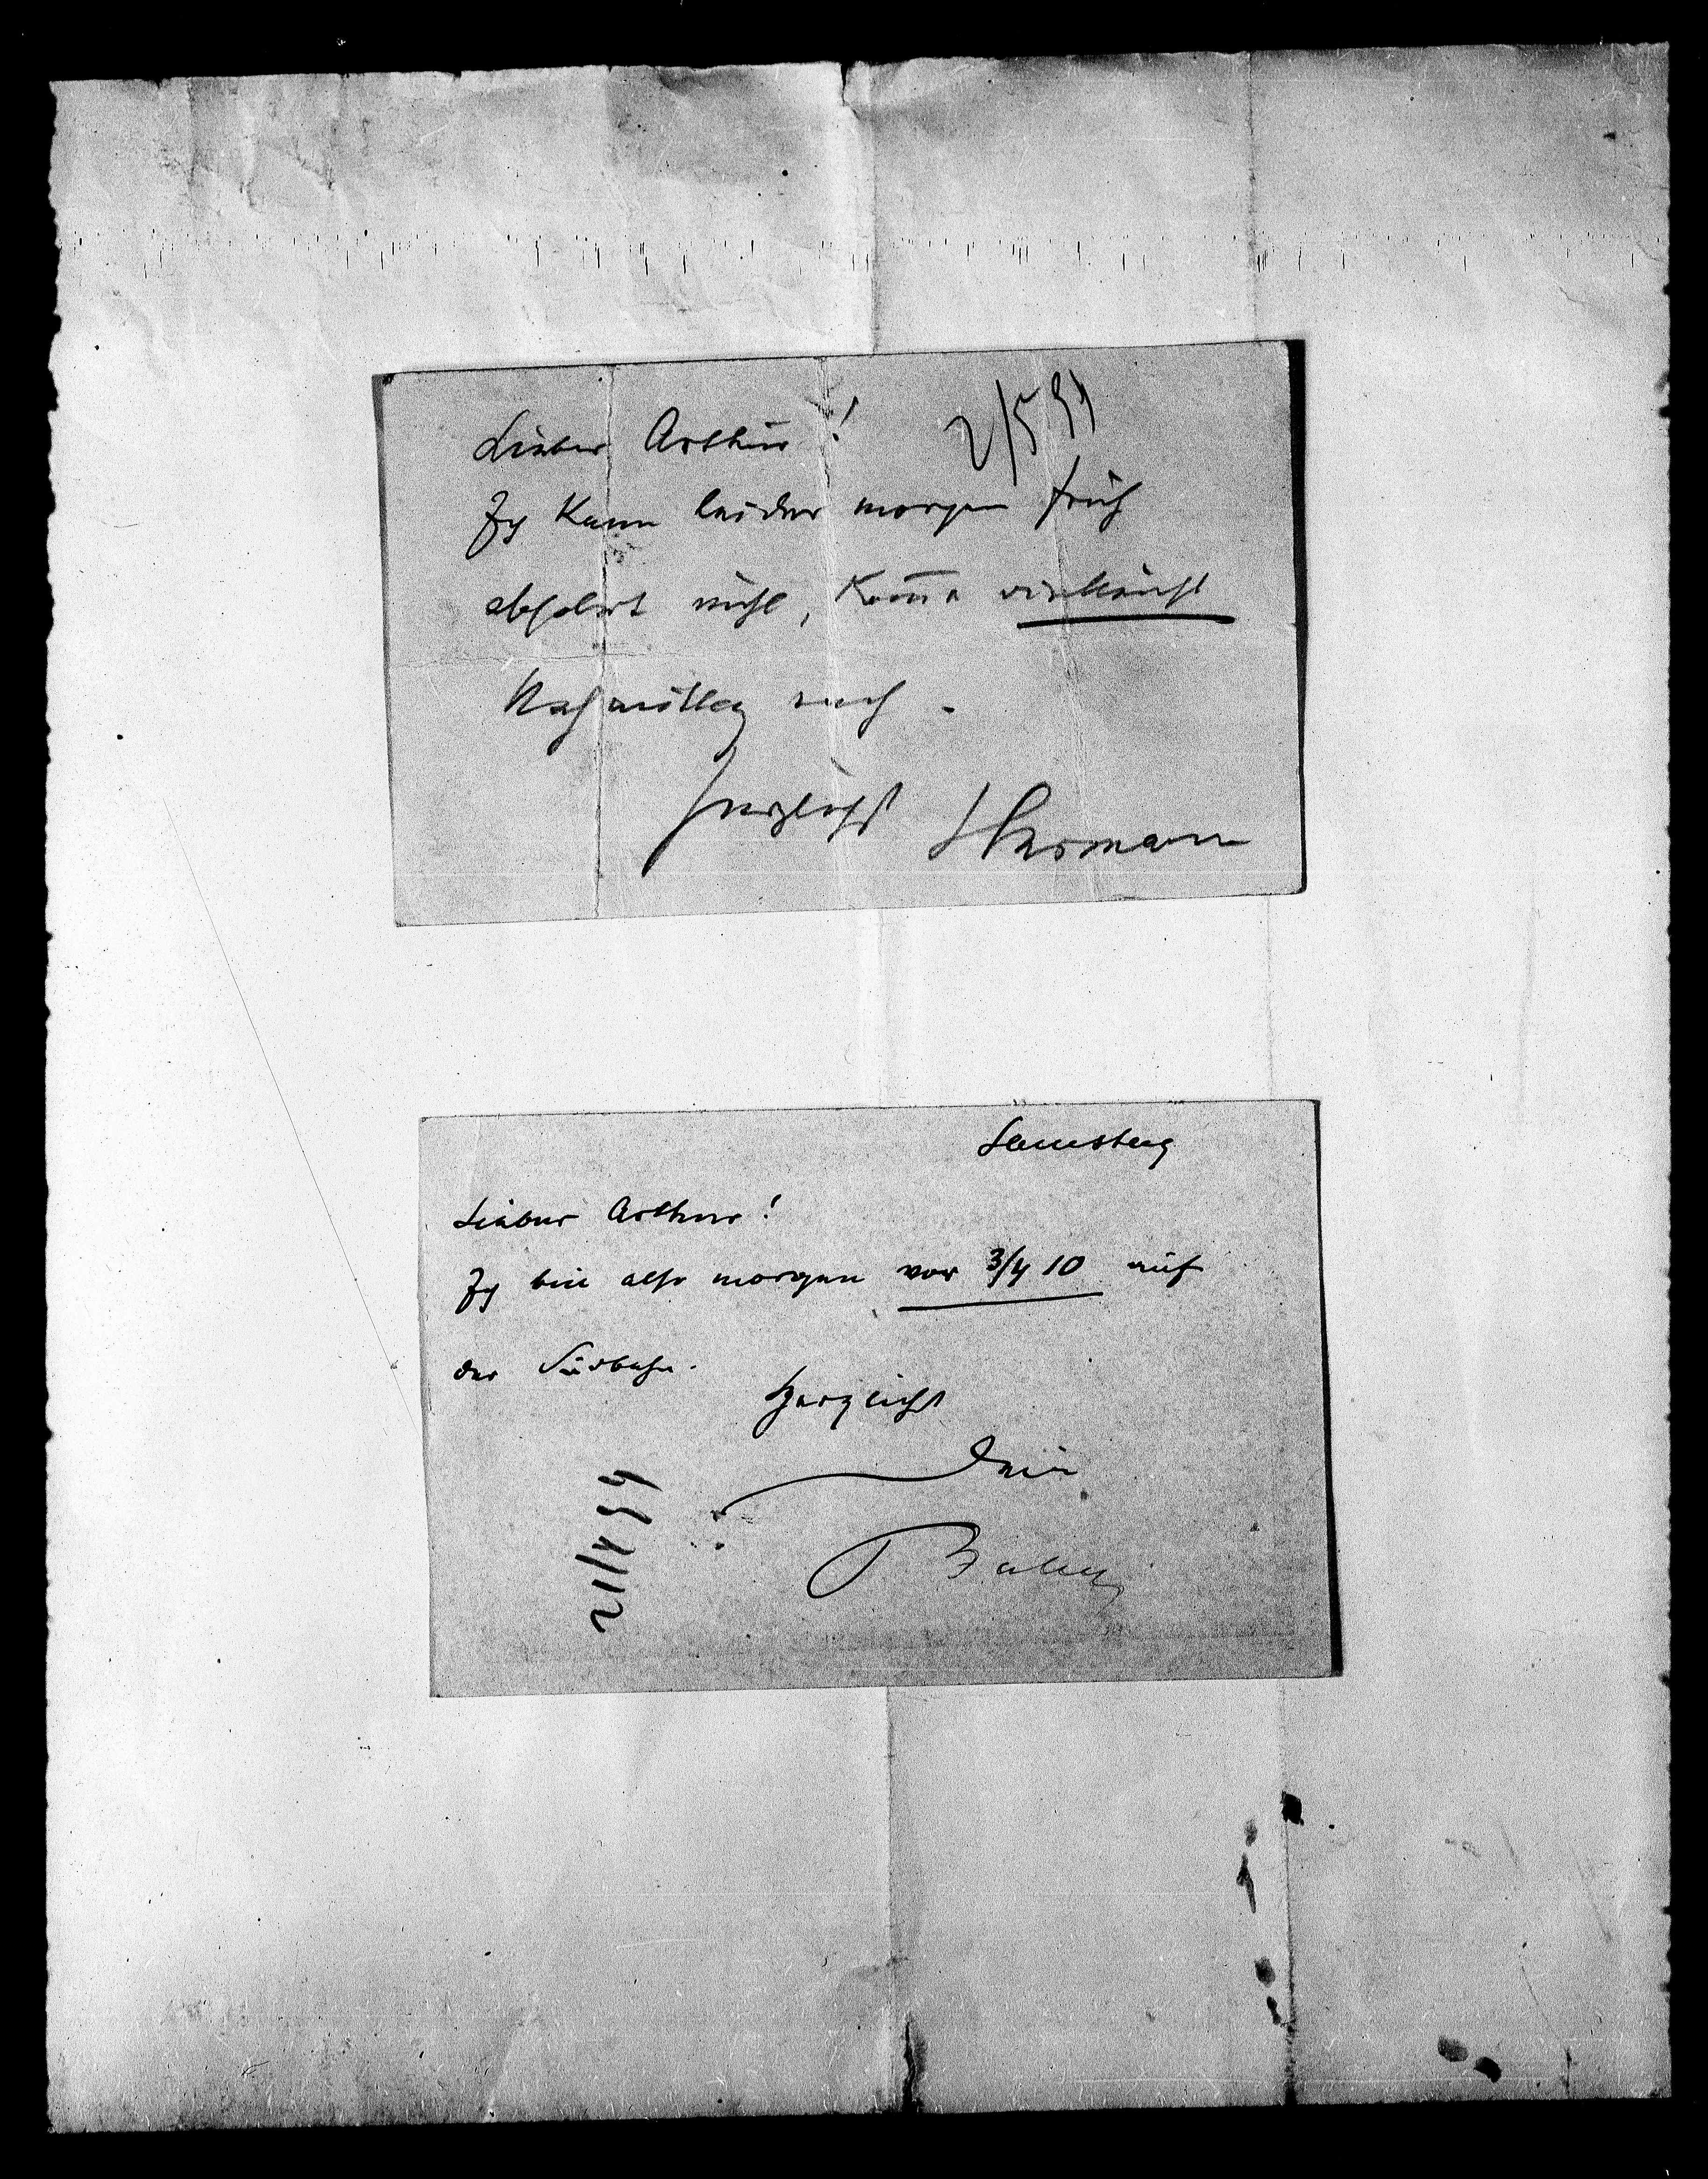 Lieber Arthur!
2/5 99
Ich kann leider morgen früh
absolut nicht, kom̅e vielleicht
Nachmittag nach.
Herzlichst Hermann
Samstag
Lieber Arthur!
Ich bin also morgen vor 3/4 10 auf
der Südbahn.
Herzlichst
Dein